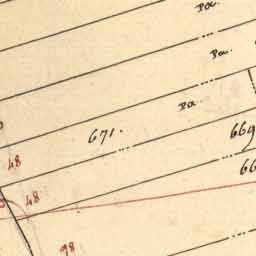 Pa.
Pa.
Pa.
671.
669
48
48
98